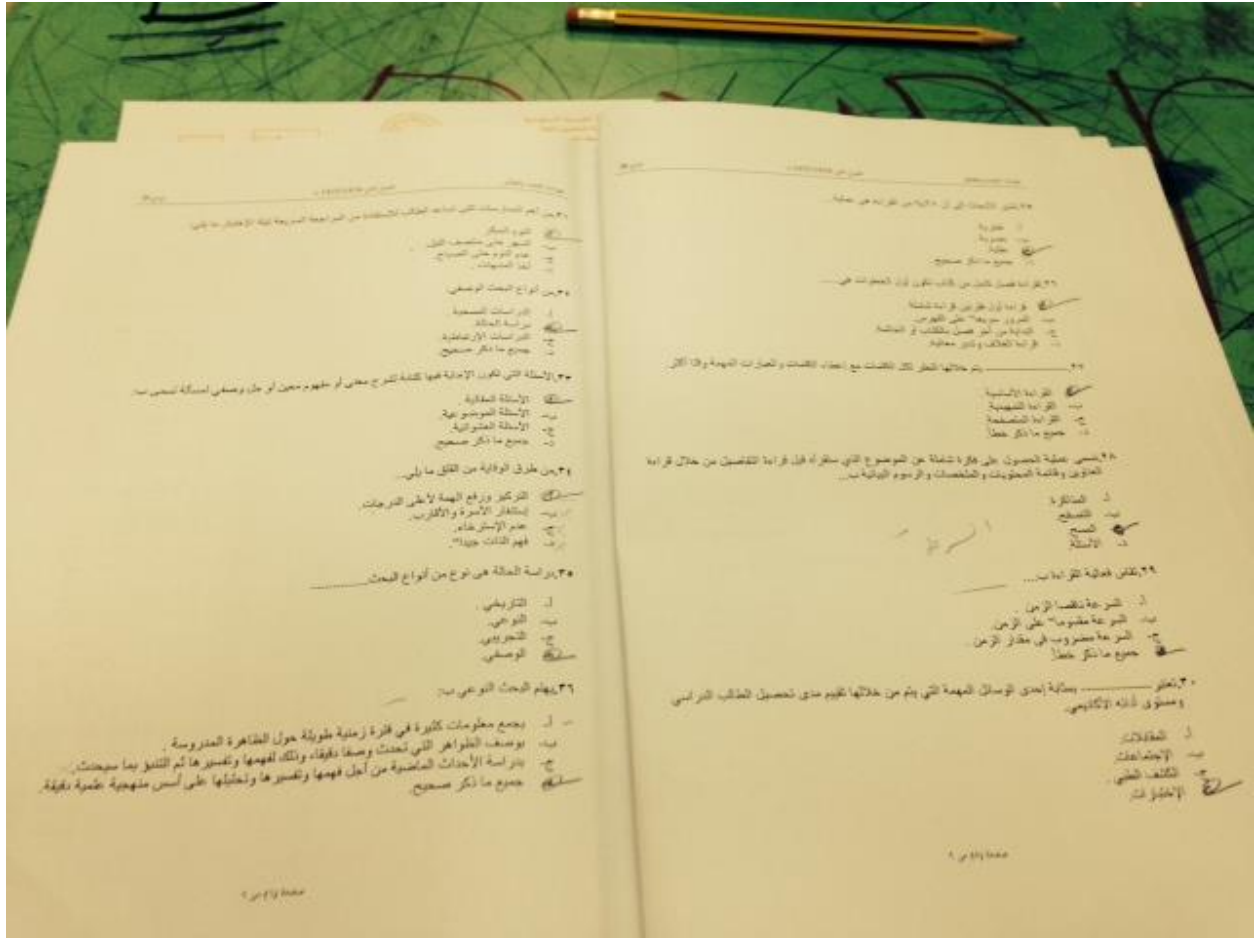 ٢٥.تشير الأبحاث إلى أن ٨٠% من القراءة هي عملية...
ج- عقلية.
د- جميع ما ذكر صحيح.
٢٦.لقراءة فصل كامل من كتاب تكون أول الخطوات هي.....
أ. قراءة أول فقرتين قراءة شاملة
ب- المرور سريعا" على الفهرس.
ج- البداية من آخر فصل بالكتاب أو الخاتمة.
د- قراءة الغلاف وتدبر معانيه.
٢٧. ـــــــــ يتم خلالها النظر لكل الكلمات مع إعطاء الكلمات والعبارات المهمة وقتا أكثر.
أ. القراءة الأساسية
ب- القراءة التمهيدية.
ج- القراءة المتصفحة
د- جميع ما ذكر خطأ.
٢٨.تسمى عملية الحصول على فكرة شاملة عن الموضوع الذي ستقرأه قبل قراءة التفاصيل من خلال قراءة
العناوين وقائمة المحتويات والملخصات والرسوم البيانية ب...
أ. المذاكرة.
ب- التصفح.
ج- المسح
د- الأسئلة
٢٩.تقاس فعالية القراءة ب....
أ. السرعة ناقصا الزمن.
ب- السرعة مقسوما" على الزمن.
ج- السرعة مضروب في مقدار الزمن.
د- جميع ما ذكر خطأ.
٣٠.تعتبر ـــــــــ بمثابة إحدى الوسائل المهمة التي يتم من خلالها تقييم مدى تحصيل الطالب الدراسي
ومستوى أدائه الأكاديمي.
أ. المقابلات.
ب- الإجتماعات.
ج- الكشف الطبي.
د- الإختبارات.
٣١.من أهم الممارسات التي تساعد الطالب للاستفادة من المراجعة السريعة ليلة الإختبار ما يلي:
أ. النوم المبكر
ب- السهر حتى منتصف الليل.
ج- عدم النوم حتى الصباح.
د- أخذ المنبهات.
٣٢.من أنواع البحث الوصفي:
أ. الدراسات المسحية.
ب- دراسة الحالة.
ج- الدراسات الإرتباطية.
د- جميع ما ذكر صحيح.
٣٣.الأسئلة التي تكون الإجابة فيها كتابة لشرح معنى أو مفهوم معين أو حل وصفي لمسألة تسمى ب:
أ. الأسئلة المقالية.
ب- الأسئلة الموضوعية.
ج- الأسئلة العشوائية.
د- جميع ما ذكر صحيح.
٣٤.من طرق الوقاية من القلق ما يلي...
أ. التركيز ورفع الهمة لأعلى الدرجات.
ب- إستنفار الأسرة والأقارب.
ج- عدم الإسترخاء.
د- فهم الذات جيدا".
٣٥.دراسة الحالة هي نوع من أنواع البحث ـــــــــ
أ. التاريخي.
ب- النوعي.
ج- التجريبي.
د- الوصفي.
٣٦.يهتم البحث النوعي ب:
أ. بجمع معلومات كثيرة في فترة زمنية طويلة حول الظاهرة المدروسة.
ب- بوصف الظواهر التي تحدث وصفا دقيقا، وذلك لفهمها وتفسيرها ثم التنبؤ بما سيحدث.
ج- بدراسة الأحداث الماضية من أجل فهمها وتفسيرها وتحليلها على أسس منهجية علمية دقيقة.
د- جميع ما ذكر صحيح.